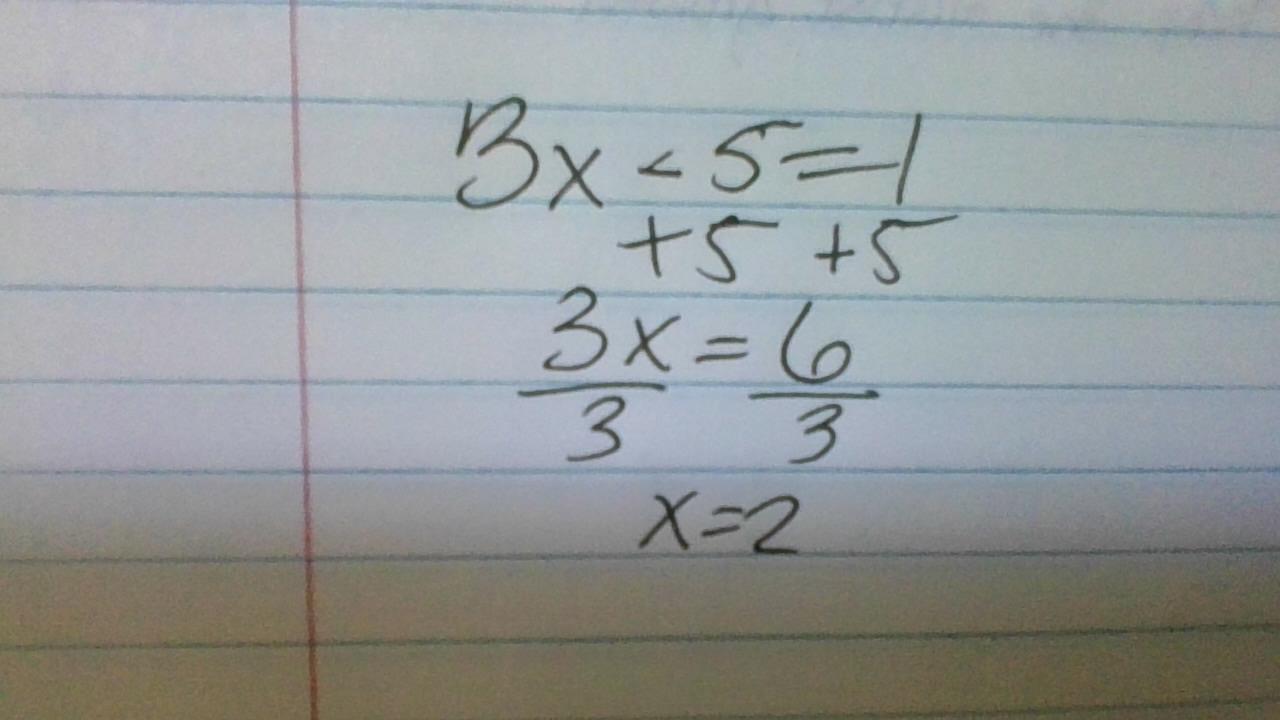 3x - 5 = 1
+5 +5
3x = 6
3 3
x = 2